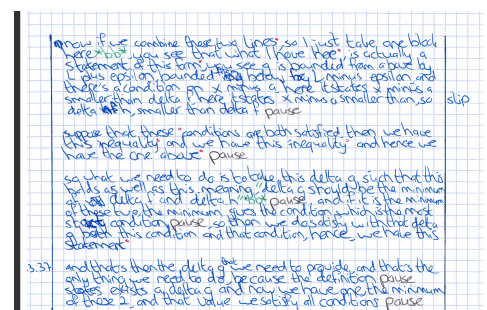 now if we combine these two lines, so I just take one block
here *bb* you see that what I have here" is actually a
statement of this form, you see g is bounded from above by
L plus epsilon, bounded from below by L minus epsilon and
there's a condition on x minus a here it states x minus a
smaller than delta f here it states x minus a smaller than, so slip
delta h, smaller than delta f pause
suppose that these" conditions are both satisfied, then we have
this inequality" and we have this inequality" and hence we
have the one "above" pause
so what we need to do is to take this delta g such that this
holds as well as this, meaning, delta g should be the minimum
of delta f and delta h pause and if it is the minimum
of these two, the minimum gives the condition which is the most
strict condition pause, so then we do satisfy with that delta
both this condition and that condition, hence, we have this
statement"
3.37 and that's then the delta g that we need to provide, and that's the
only thing we need to do, because the definition pause
states exists a delta g and now we have one, the minimum
of these 2, and that value we satisfy all conditions pause